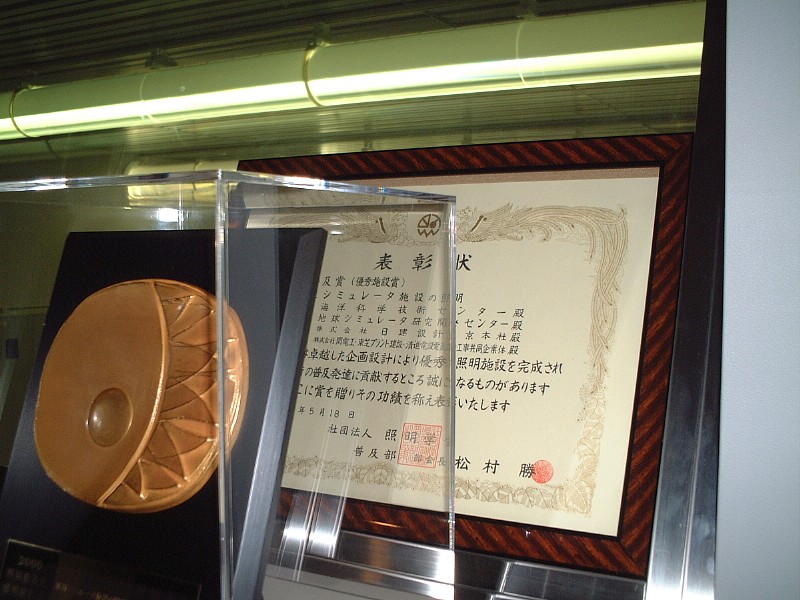 表彰状
及賞(優秀施設賞)
シミュレータ施設の照明
海洋科学技術センター殿
地球シミュレータ研究開 センター殿
株式会社 日建設計 京本社殿
株式会社関電工・東芝プラント建設・ 工事共同企業体殿
卓越した企画設計により優秀 照明施設を完成され
の普及発達に貢献するところ誠に なるものがあります
こに賞を贈りその功績を称え表 いたします
年5月18日
社団法人 照明学
普及部 部会長 松村 勝
2000